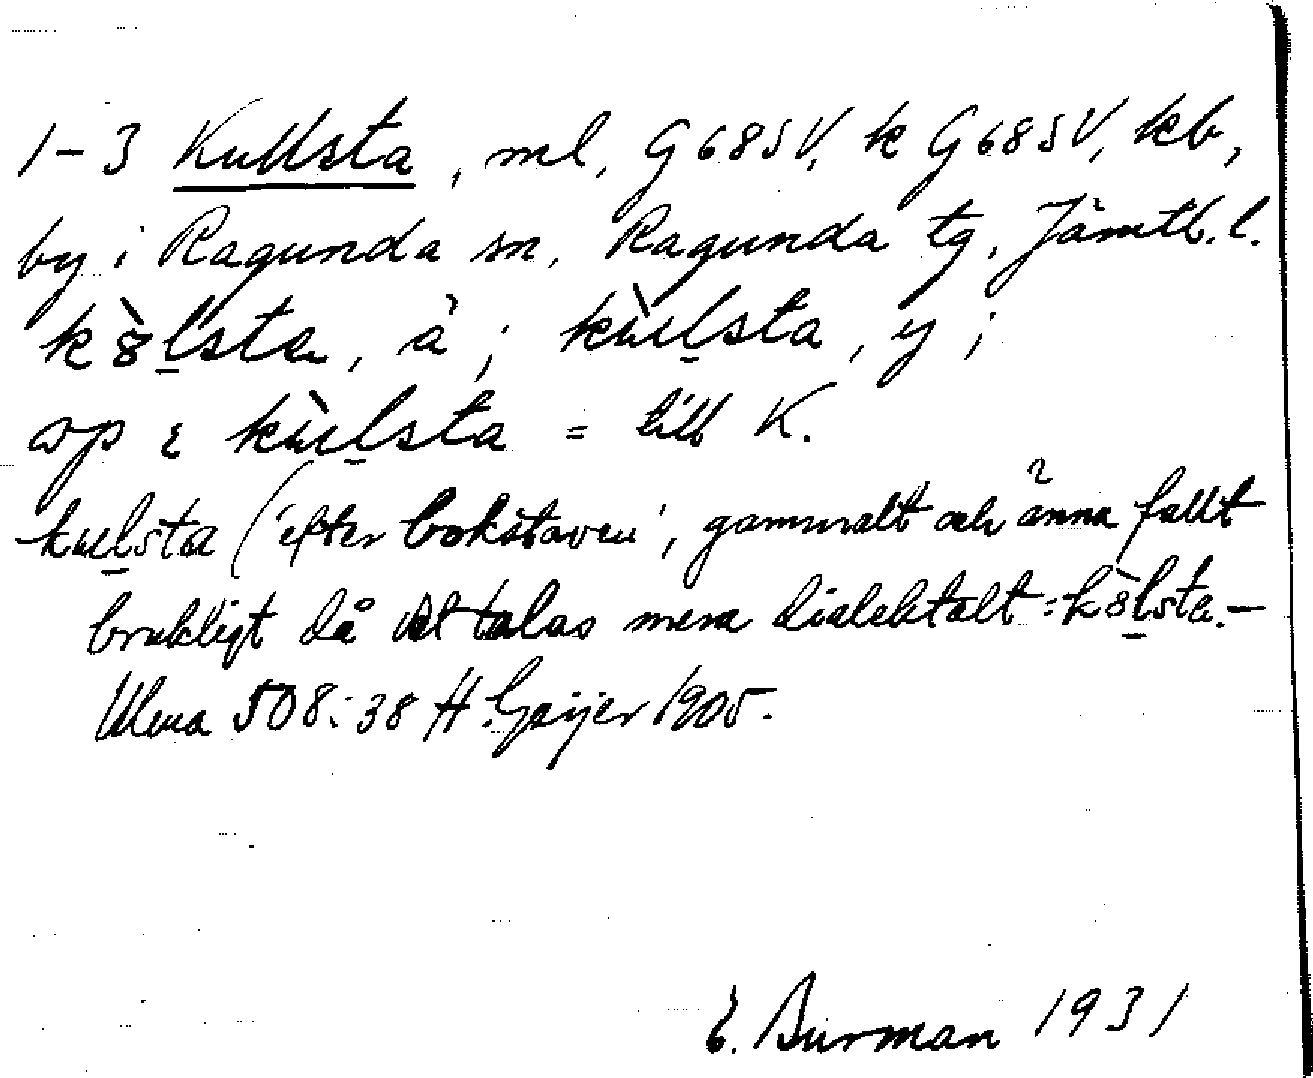 1-3 Kullsta, ml, G 68 SV, k G 68 SV, kb,
by i Ragunda sn, Ragunda tg, Jämtl. l.
kò̀8l̲sta, ä; kùl̲sta, y;
op ɛ kùl̲sta = till K.
kul̲sta (efter bokstaven', gammalt och ännu fullt
brukligt då det talas mera dialektalt: k8̀l̲sta. —
Ulma 508:38 H. Geijer 1905.
E. Burman 1931